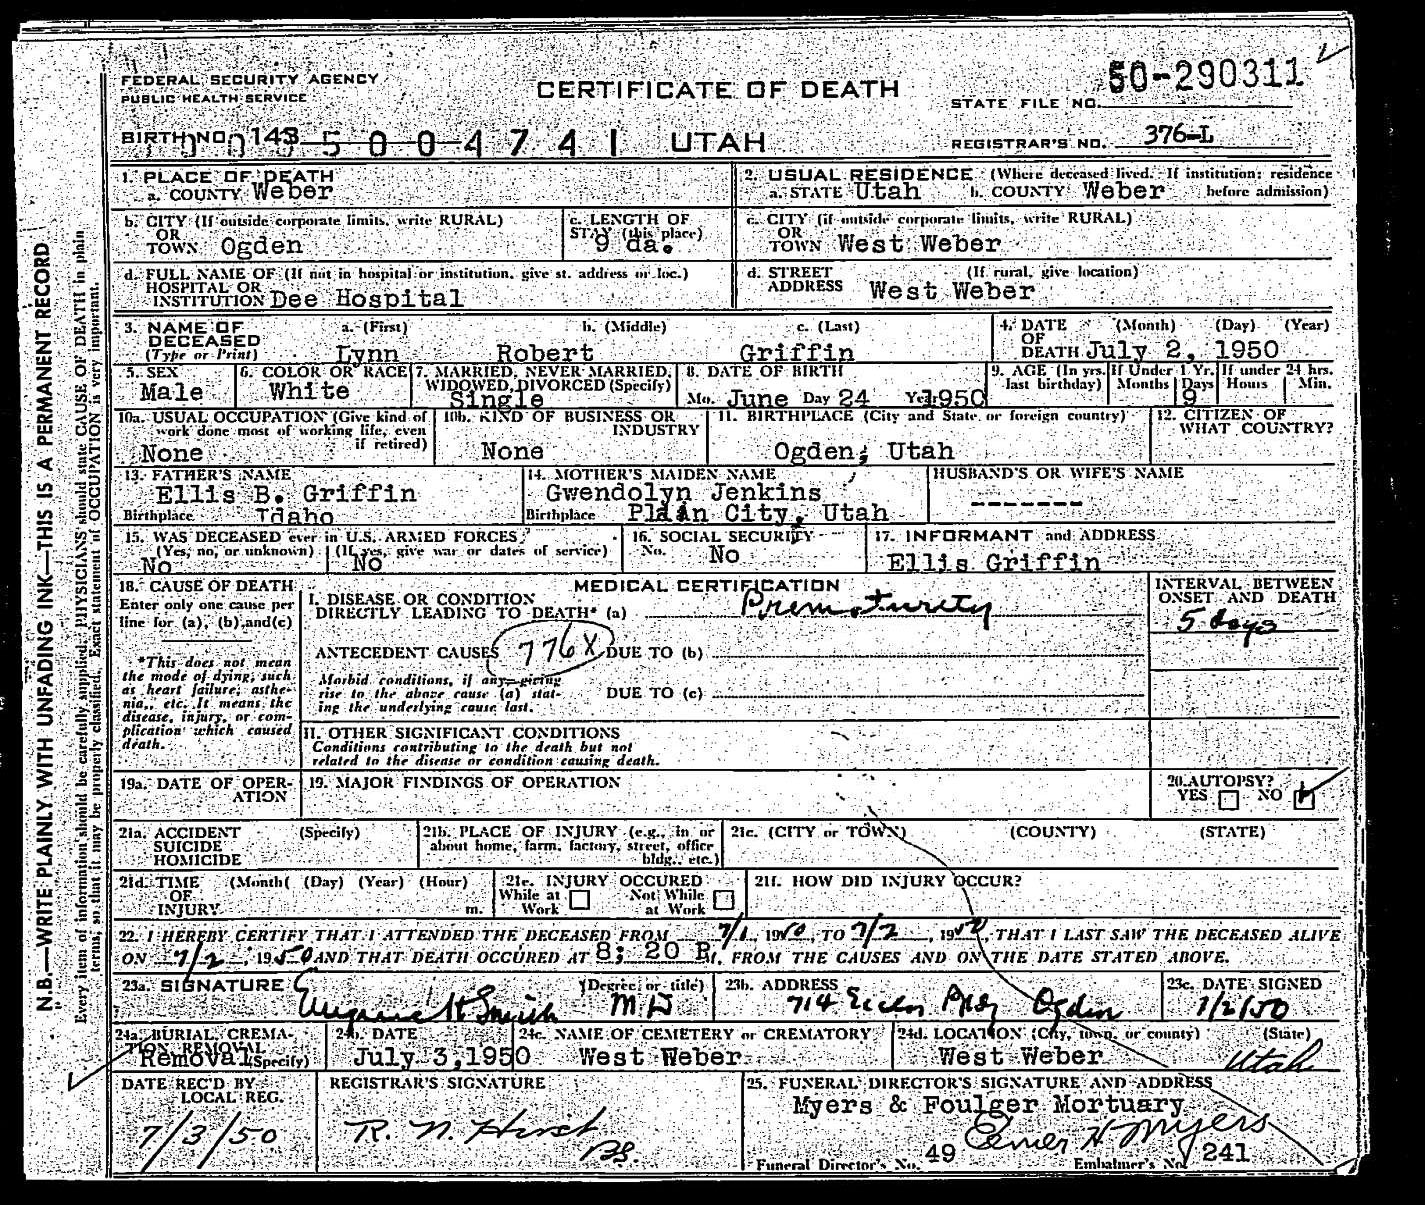 FEDERAL SECURITY AGENCY
PUBLIC HEALTH SERVICE
CERTIFICATE OF DEATH
STATE FILE NO. 50-290311
BIRTH NO. 143 5004741 UTAH
REGISTRAR'S NO. 376-L
1. PLACE OF DEATH
a. COUNTY Weber
2. USUAL RESIDENCE (Where deceased lived. If institution: residence before admission)
a. STATE Utah b. COUNTY Weber
b. CITY (If outside corporate limits, write RURAL)
OR
TOWN Ogden
c. LENGTH OF
STAY (this place)
9 da.
c. CITY (if outside corporate limits, write RURAL)
OR
TOWN West Weber
d. FULL NAME OF (If not in hospital or institution, give st. address or loc.)
HOSPITAL OR
INSTITUTION Dee Hospital
d. STREET (If rural, give location)
ADDRESS West Weber
3. NAME OF DECEASED
(Type or Print)
a. (First) b. (Middle) c. (Last)
Lynn Robert Griffin
4. DATE (Month) (Day) (Year)
OF
DEATH July 2, 1950
5. SEX
Male
6. COLOR OR RACE
White
7. MARRIED, NEVER MARRIED,
WIDOWED, DIVORCED (Specify)
Single
8. DATE OF BIRTH
Mo. June Day 24 Yr. 1950
9. AGE (In yrs. last birthday) If Under 1 Yr. Months Days If under 24 hrs. Hours Min.
9
10a. USUAL OCCUPATION (Give kind of
work done most of working life, even
if retired)
None
10b. KIND OF BUSINESS OR
INDUSTRY
None
11. BIRTHPLACE (City and State or foreign country)
Ogden, Utah
12. CITIZEN OF
WHAT COUNTRY?
13. FATHER'S NAME
Ellis B. Griffin
Birthplace Idaho
14. MOTHER'S MAIDEN NAME
Gwendolyn Jenkins
Birthplace Plain City, Utah
HUSBAND'S OR WIFE'S NAME
-------
15. WAS DECEASED ever in U.S. ARMED FORCES?
(Yes, no, or unknown) (If yes, give war or dates of service)
No No
16. SOCIAL SECURITY
No. No
17. INFORMANT and ADDRESS
Ellis Griffin
18. CAUSE OF DEATH
Enter only one cause per
line for (a), (b), and (c)
*This does not mean
the mode of dying, such
as heart failure, asthe-
nia, etc. It means the
disease, injury, or com-
plication which caused
death.
MEDICAL CERTIFICATION
I. DISEASE OR CONDITION
DIRECTLY LEADING TO DEATH* (a) Prematurity
INTERVAL BETWEEN
ONSET AND DEATH
5 days
ANTECEDENT CAUSES 776X DUE TO (b)
Morbid conditions, if any, giving
rise to the above cause (a) stat-
ing the underlying cause last.
DUE TO (c)
II. OTHER SIGNIFICANT CONDITIONS
Conditions contributing to the death but not
related to the disease or condition causing death.
19a. DATE OF OPER-
ATION
19. MAJOR FINDINGS OF OPERATION
20. AUTOPSY?
YES NO
21a. ACCIDENT (Specify)
SUICIDE
HOMICIDE
21b. PLACE OF INJURY (e.g., in or
about home, farm, factory, street, office
bldg., etc.)
21c. (CITY or TOWN) (COUNTY) (STATE)
21d. TIME (Month( (Day) (Year) (Hour)
OF
INJURY m.
21e. INJURY OCCURED
While at Work Not While at Work
21f. HOW DID INJURY OCCUR?
22. I HEREBY CERTIFY THAT I ATTENDED THE DECEASED FROM 7/1, 1950, TO 7/2, 1950, THAT I LAST SAW THE DECEASED ALIVE
ON 7/2, 1950 AND THAT DEATH OCCURED AT 8:20 P M. FROM THE CAUSES AND ON THE DATE STATED ABOVE.
23a. SIGNATURE (Degree or title)
Eugene H Smith MD
23b. ADDRESS
714 Eccles Bldg Ogden
23c. DATE SIGNED
7/2/50
24a. BURIAL, CREMA-
TION REMOVAL
Removal (Specify)
24b. DATE
July 3, 1950
24c. NAME OF CEMETERY or CREMATORY
West Weber
24d. LOCATION (City, town, or county) (State)
West Weber Utah
DATE REC'D BY
LOCAL REG.
7/3/50
REGISTRAR'S SIGNATURE
R. N. Hirst
25. FUNERAL DIRECTOR'S SIGNATURE AND ADDRESS
Myers & Foulger Mortuary
Elmer H Myers
Funeral Director's No. 49 Embalmer's No. 241
N.B.—WRITE PLAINLY WITH UNFADING INK—THIS IS A PERMANENT RECORD
Every item of information should be carefully supplied. PHYSICIANS should state CAUSE OF DEATH in plain
terms, so that it may be properly classified. Exact statement of OCCUPATION is very important.